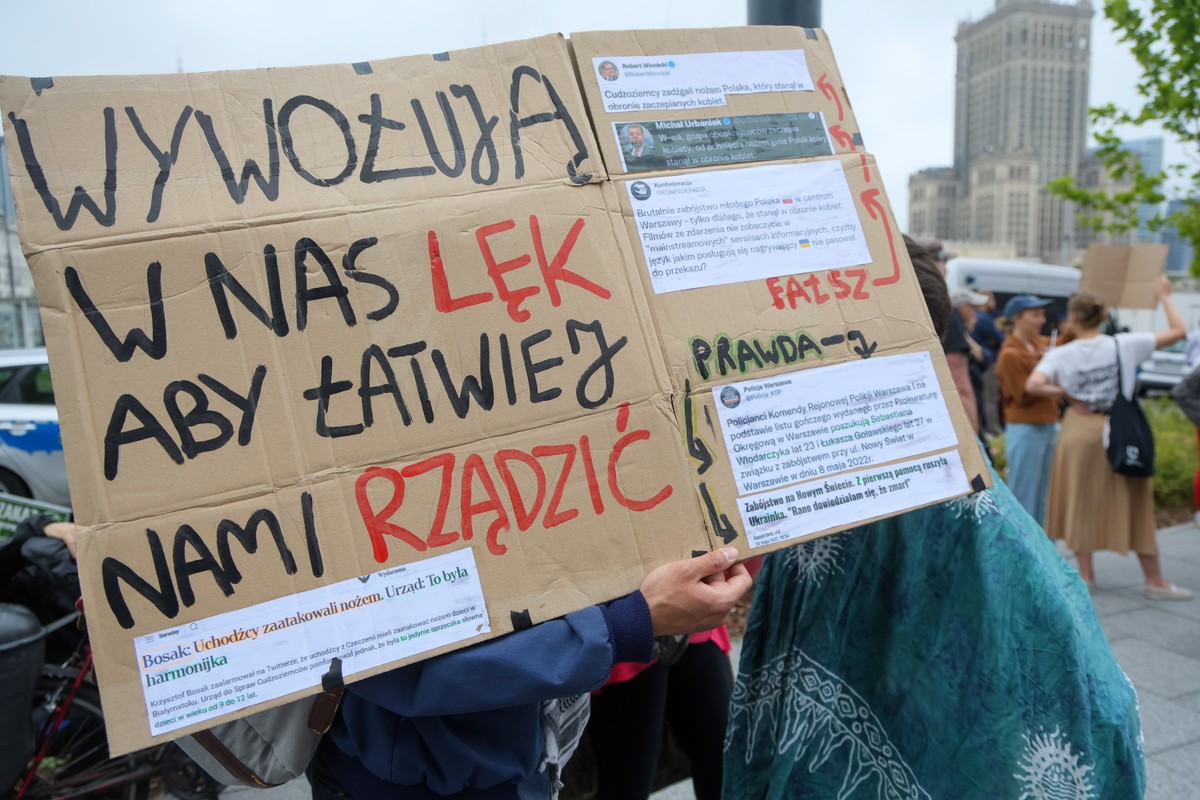 WYWOŁUJĄ
W NAS LĘK
ABY ŁATWIEJ
NAMI RZĄDZIĆ
Wydarzenia
Bosak: Uchodźcy zaatakowali nożem. Urząd: To była
harmonijka
Krzysztof Bosak zaalarmował na Twitterze, że uchodźcy z Czeczenii mieli zaatakować nożem dzieci w
Białymstoku. Urząd do Spraw Cudzoziemców poinformował jednak, że była to jedynie sprzeczka słowna
dzieci w wieku od 9 do 12 lat.
Robert Winnicki
@RobertWinnicki
Cudzoziemcy zadźgali nożem Polaka, który stanął w
obronie zaczepianych kobiet.
Michał Urbaniak
W-wa, grupa obcokrajowców zaczepia
kobiety, od pchnięcia nożem ginie Polak który
stanął w obronie kobiet.
Konfederacja
@KONFEDERACJA_
Brutalnie zabójstwo młodego Polaka w centrum
Warszawy - tylko dlatego, że stanął w obronie kobiet.
Filmów ze zdarzenia nie zobaczycie w
"mainstreamowych" serwisach informacyjnych, czyżby
język jakim posługują się nagrywający nie pasował
do przekazu?
FAŁSZ
PRAWDA
Policja Warszawa
@Policja_KSP
Policjanci Komendy Rejonowej Policji Warszawa I na
podstawie listu gończego wydanego przez Prokuraturę
Okręgową w Warszawie poszukują Sebastiana
Włodarczyka lat 23 i Łukasza Goławskiego lat 27 w
związku z zabójstwem przy ul. Nowy Świat w
Warszawie w dniu 8 maja 2022r.
Zabójstwo na Nowym Świecie. Z pierwszą pomocą ruszyła
Ukrainka. "Rano dowiedziałam się, że zmarł"